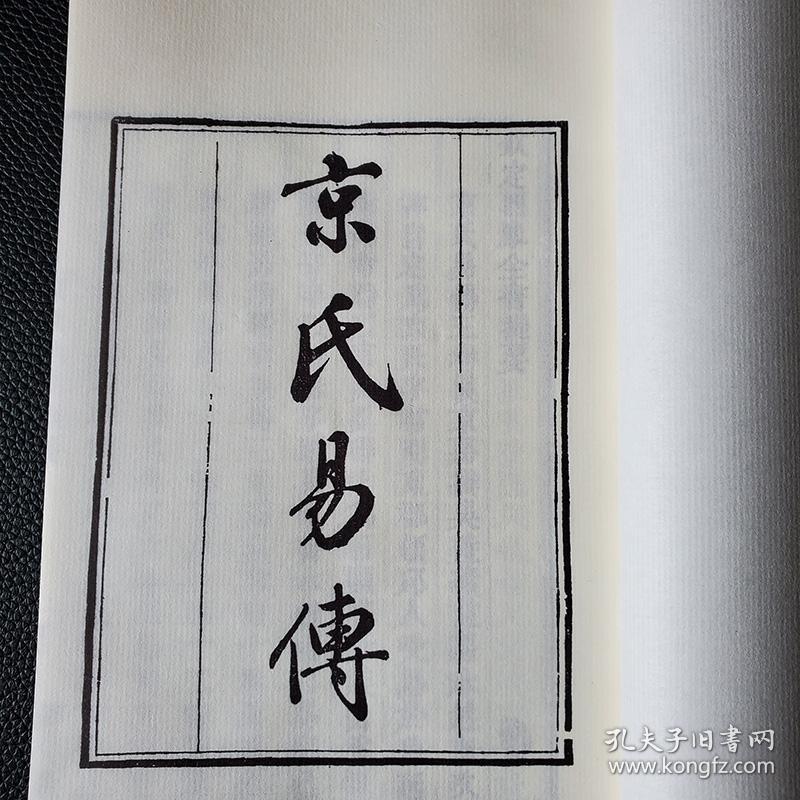 京氏易傳
孔夫子旧書网
www.kongfz.com